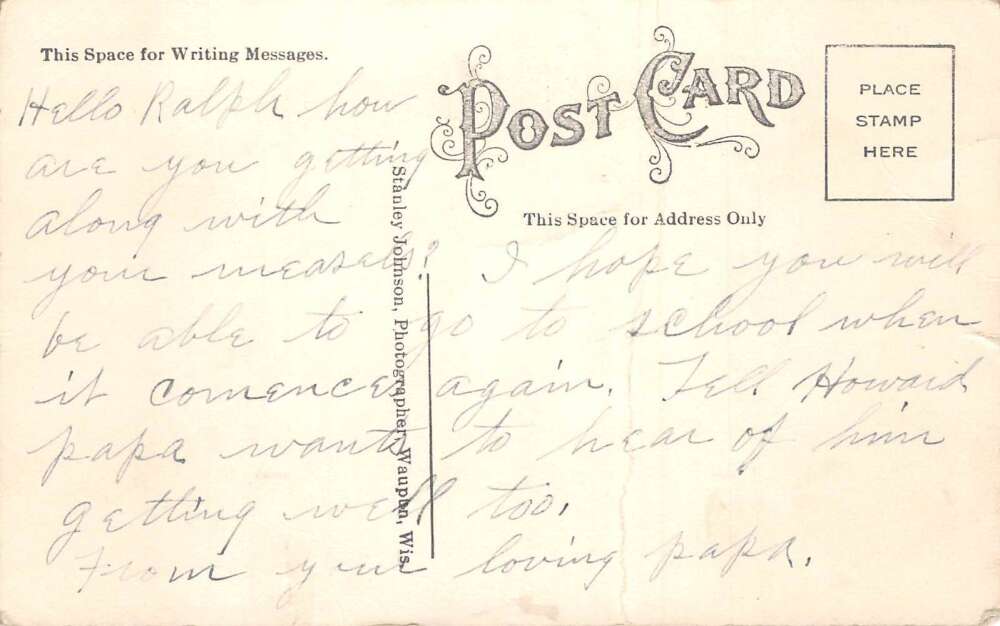 This Space for Writing Messages.
POST CARD
PLACE
STAMP
HERE
This Space for Address Only
Stanley Johnson, Photographer, Waupun, Wis.
Hello Ralph how
are you getting
along with
your measels? I hope you will
be able to go to school when
it comences again. Tell Howard
papa wants to hear of him
getting well too.
From your loving papa.